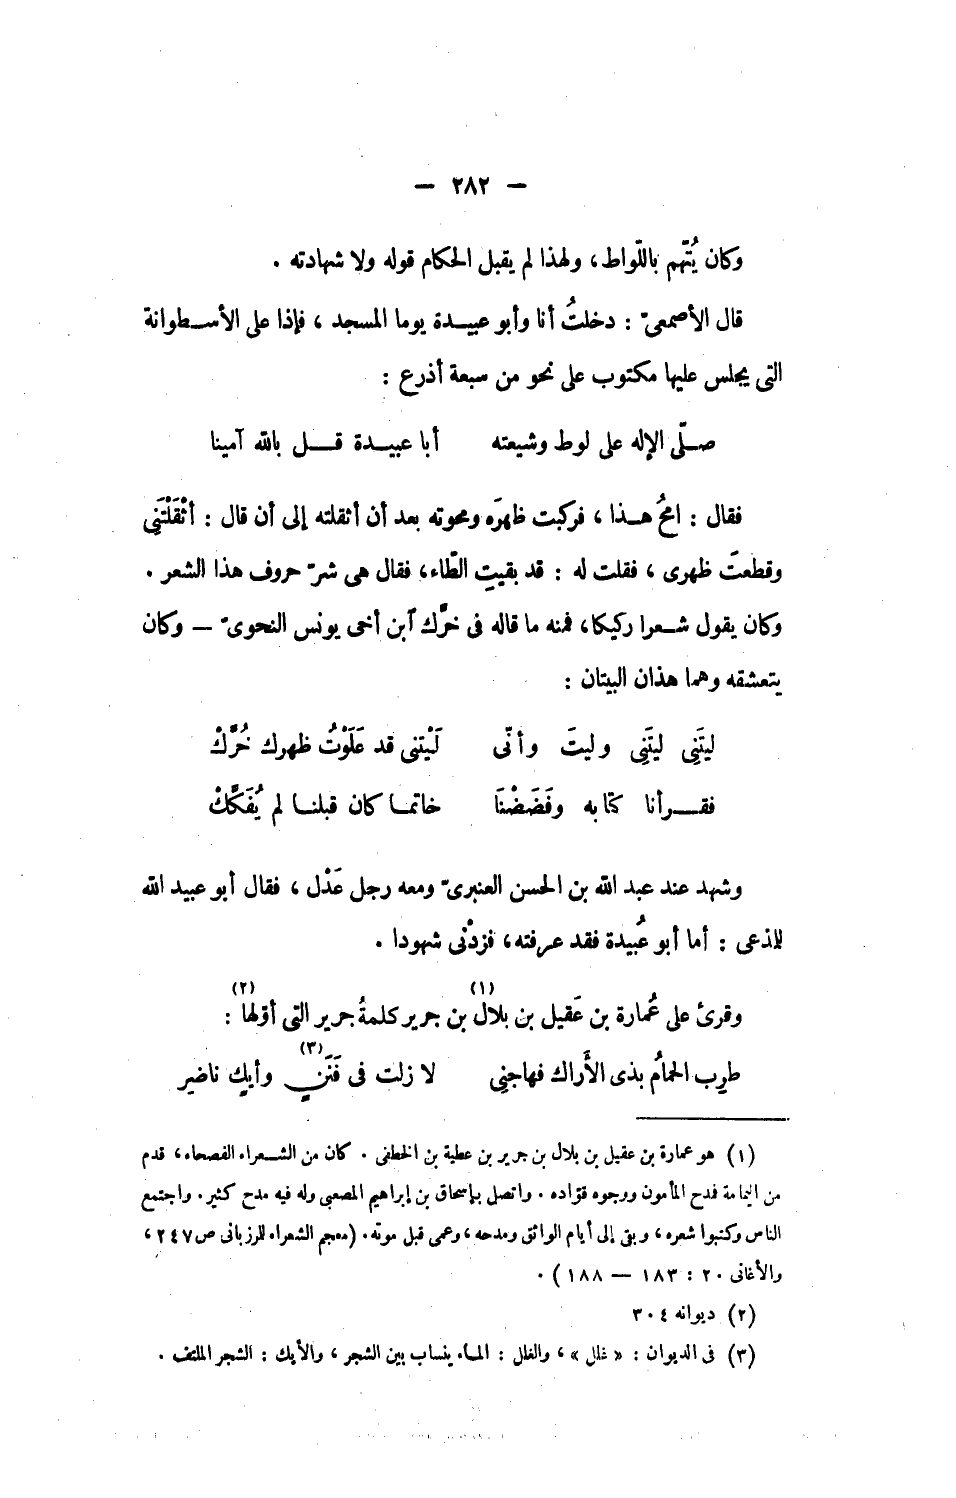 — ٢٨٢ —
وكان يُتّهم باللّواط، ولهذا لم يقبل الحكام قوله ولا شهادته .
قال الأصمعىّ : دخلتُ أنا وأبو عبيدة يوما المسجد ، فإذا على الأسطوانة
التى يجلس عليها مكتوب على نحو من سبعة أذرع :
صلّى الإله على لوط وشيعته أبا عبيدة قل بالله آمينا
فقال : امحُ هذا ، فركبت ظهرَه ومحوته بعد أن أثقلته إلى أن قال : أثْقَلْتَنِى
وقطعتَ ظهرى ، فقلت له : قد بقيتِ الطّاء، فقال هى شرّ حروف هذا الشعر .
وكان يقول شعرا ركيكا، فمنه ما قاله فى خرَّك ٱبن أخى يونس النحوىّ — وكان
يتعشقه وهما هذان البيتان :
ليتَنِى ليتَنِى وليتَ وأنّى لَيْتنى قد عَلَوْتُ ظهرك خُرَّكْ
فقرأنا كتابه وفَضَضْنَا خاتما كان قبلنا لم يُفَكَّكْ
وشهد عند عبد الله بن الحسن العنبرىّ ومعه رجل عَدْل ، فقال أبو عبيد الله
للمدعى : أما أبو عُبيدة فقد عرفته، فزدْنى شهودا .
وقرئ على عُمارة بن عَقيل بن بلال (١) بن جرير كلمةُ جرير التى أوّلها (٢) :
طرِب الحمامُ بذى الأَراك فهاجنِى لا زلت فى فَنَنٍ (٣) وأيكٍ ناضير
(١) هو عمارة بن عقيل بن بلال بن جرير بن عطية بن الخطفى . كان من الشعراء الفصحاء، قدم
من اليمامة فمدح المأمون ووجوه قوّاده . واتصل بإسحاق بن إبراهيم المصعبى وله فيه مدح كثير . واجتمع
الناس وكتبوا شعره ، وبقى إلى أيام الواثق ومدحه ، وعمى قبل موته . (معجم الشعراء للمرزبانى ص ٢٤٧ ،
والأغانى ٢٠ : ١٨٣ — ١٨٨ ) .
(٢) ديوانه ٣٠٤
(٣) فى الديوان : « غلل » ، والغلل : الماء ينساب بين الشجر ، والأيك : الشجر الملتف .